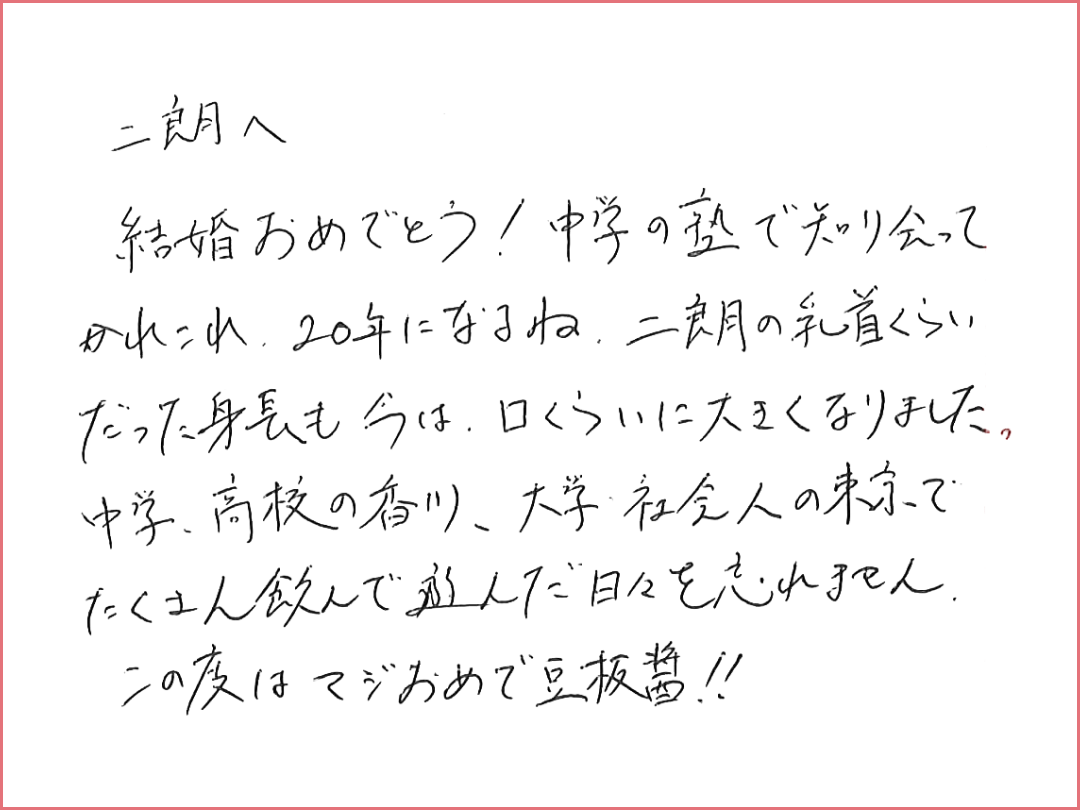 二朗へ
結婚おめでとう！中学の塾で知り会って
かれこれ、20年になるね、二朗の乳首くらい
だった身長も今は、口くらいに大きくなりました。
中学、高校の香川、大学、社会人の東京で
たくさん飲んで遊んだ日々を忘れません。
この度はマジおめで豆板醤!!